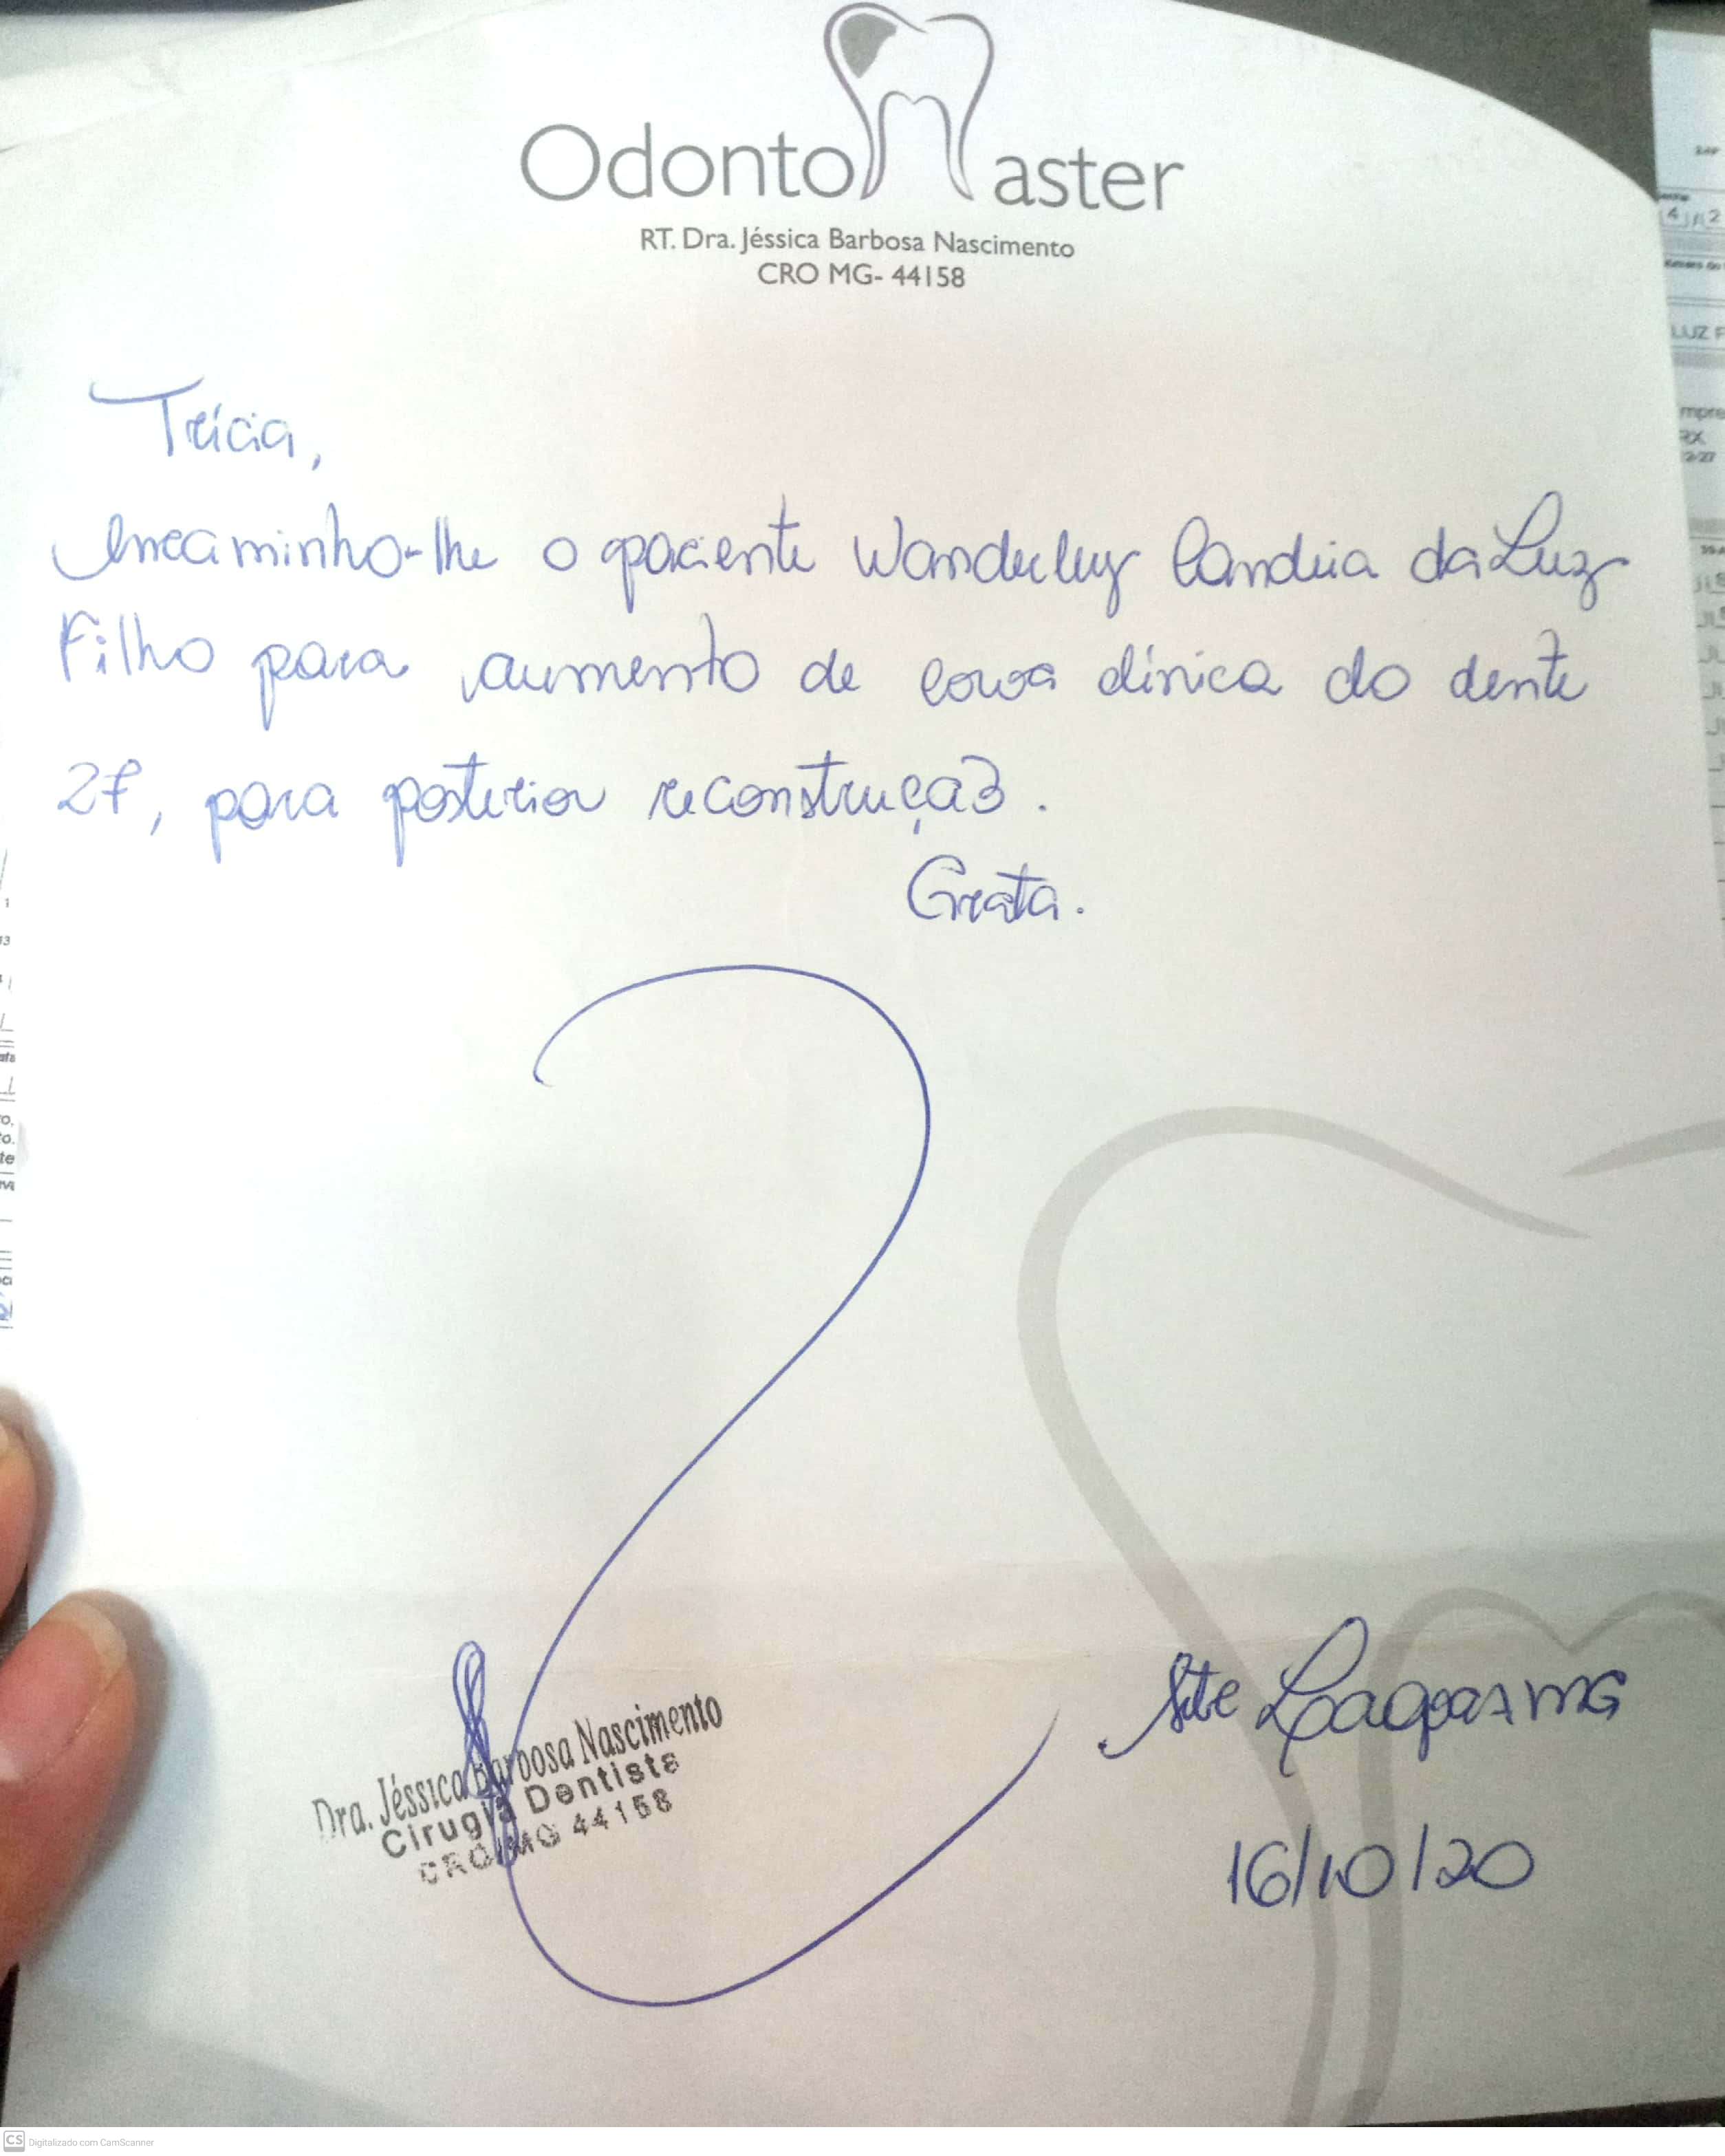 OdontoMaster
RT. Dra. Jéssica Barbosa Nascimento
CRO MG- 44158
Trícia,
encaminho-lhe o paciente Wanderley Candeia da Luz
Filho para aumento de coroa clínica do dente
27, para posterior reconstrução.
Grata.
Dra. Jéssica Barbosa Nascimento
Cirugiã Dentista
CRO/MG 44158
Sete Lagoas MG
16/10/20
LUZ F
CS Digitalizado com CamScanner